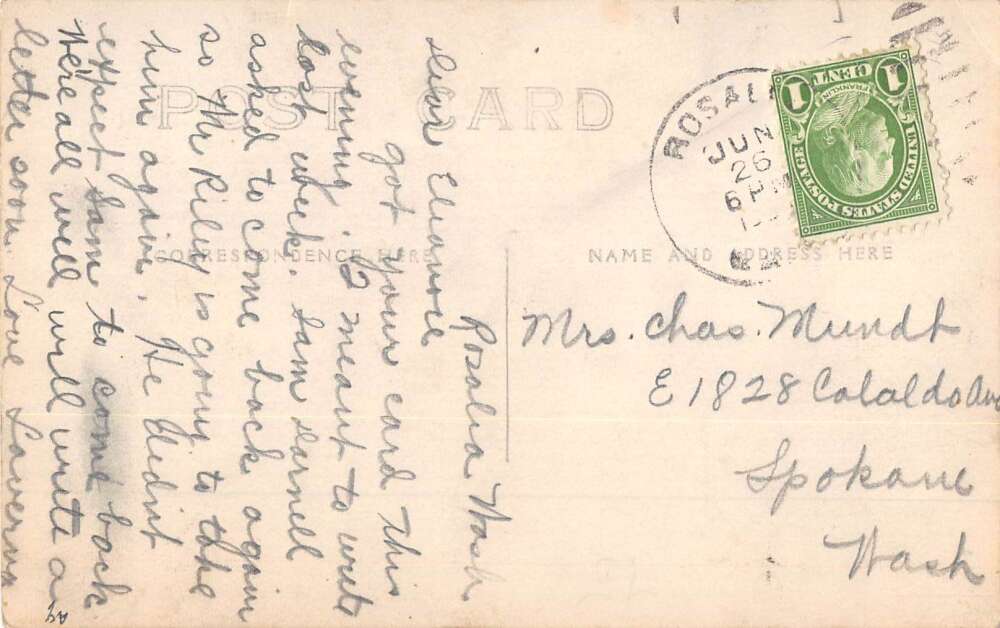 POST CARD
CORRESPONDENCE HERE
NAME AND ADDRESS HERE
Rosalia Wash
Dear Eleanore
got your card this
evening. I meant to write
last week. Sam Darnell
asked to come back again
so Mr Riley is going to take
him again. He didnt
expect Sam to come back
We're all well will write a
letter soon. Love Laverna
Mrs. Chas. Mundt
E 1828 Cataldo Ave
Spokane
Wash
ROSALI
JUN
26
6 PM
UNITED STATES POSTAGE
FRANKLIN
1 CENT 1